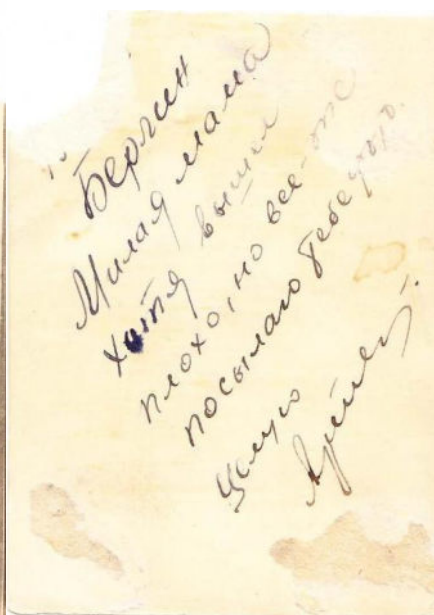 Берлин
Милая мама
хотя вышел
плохо, но все-же
посылаю тебе фото.
Целую